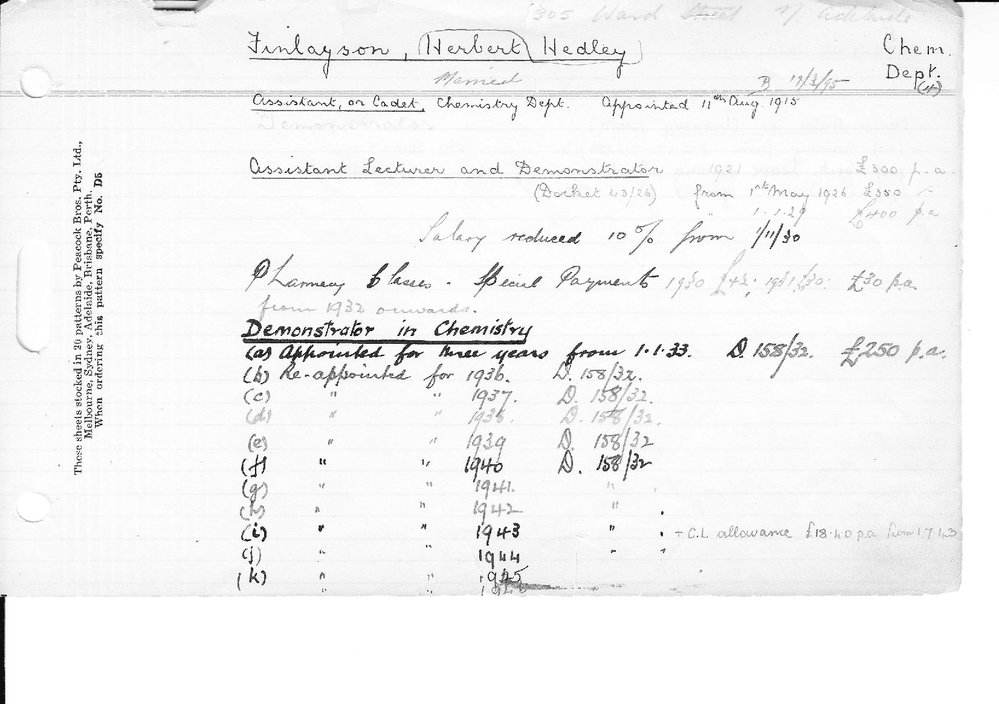 305 Ward Street N Adelaide
Finlayson, Herbert Hedley
Chem. Dept.
Married B 19/3/95
Assistant, or Cadet, Chemistry Dept. Appointed 11th Aug. 1915
Demonstrator.
Assistant Lecturer and Demonstrator 1921 £300 p.a.
(Docket 43/26) from 1st May 1926 £350 "
" 1.1.29 £400 p.a
Salary reduced 10% from 1/11/30
Pharmacy Classes - Special Payments 1930 £42; 1931 £30: £30 p.a.
from 1932 onwards.
Demonstrator in Chemistry
(a) Appointed for three years from 1.1.33. D. 158/32. £250 p.a.
(b) Re-appointed for 1936. D. 158/32.
(c) " " 1937. D. 158/32.
(d) " " 1938. D. 158/32.
(e) " " 1939 D. 158/32
(f) " " 1940 D. 158/32
(g) " " 1941. " .
(h) " " 1942 " .
(i) " " 1943 " . - C.L. allowance £18.40 p.a. from 1 7 43
(j) " " 1944 " "
(k) " " 1945
These sheets stocked in 20 patterns by Peacock Bros. Pty. Ltd.,
Melbourne, Sydney, Adelaide, Brisbane, Perth.
When ordering this pattern specify No. D5